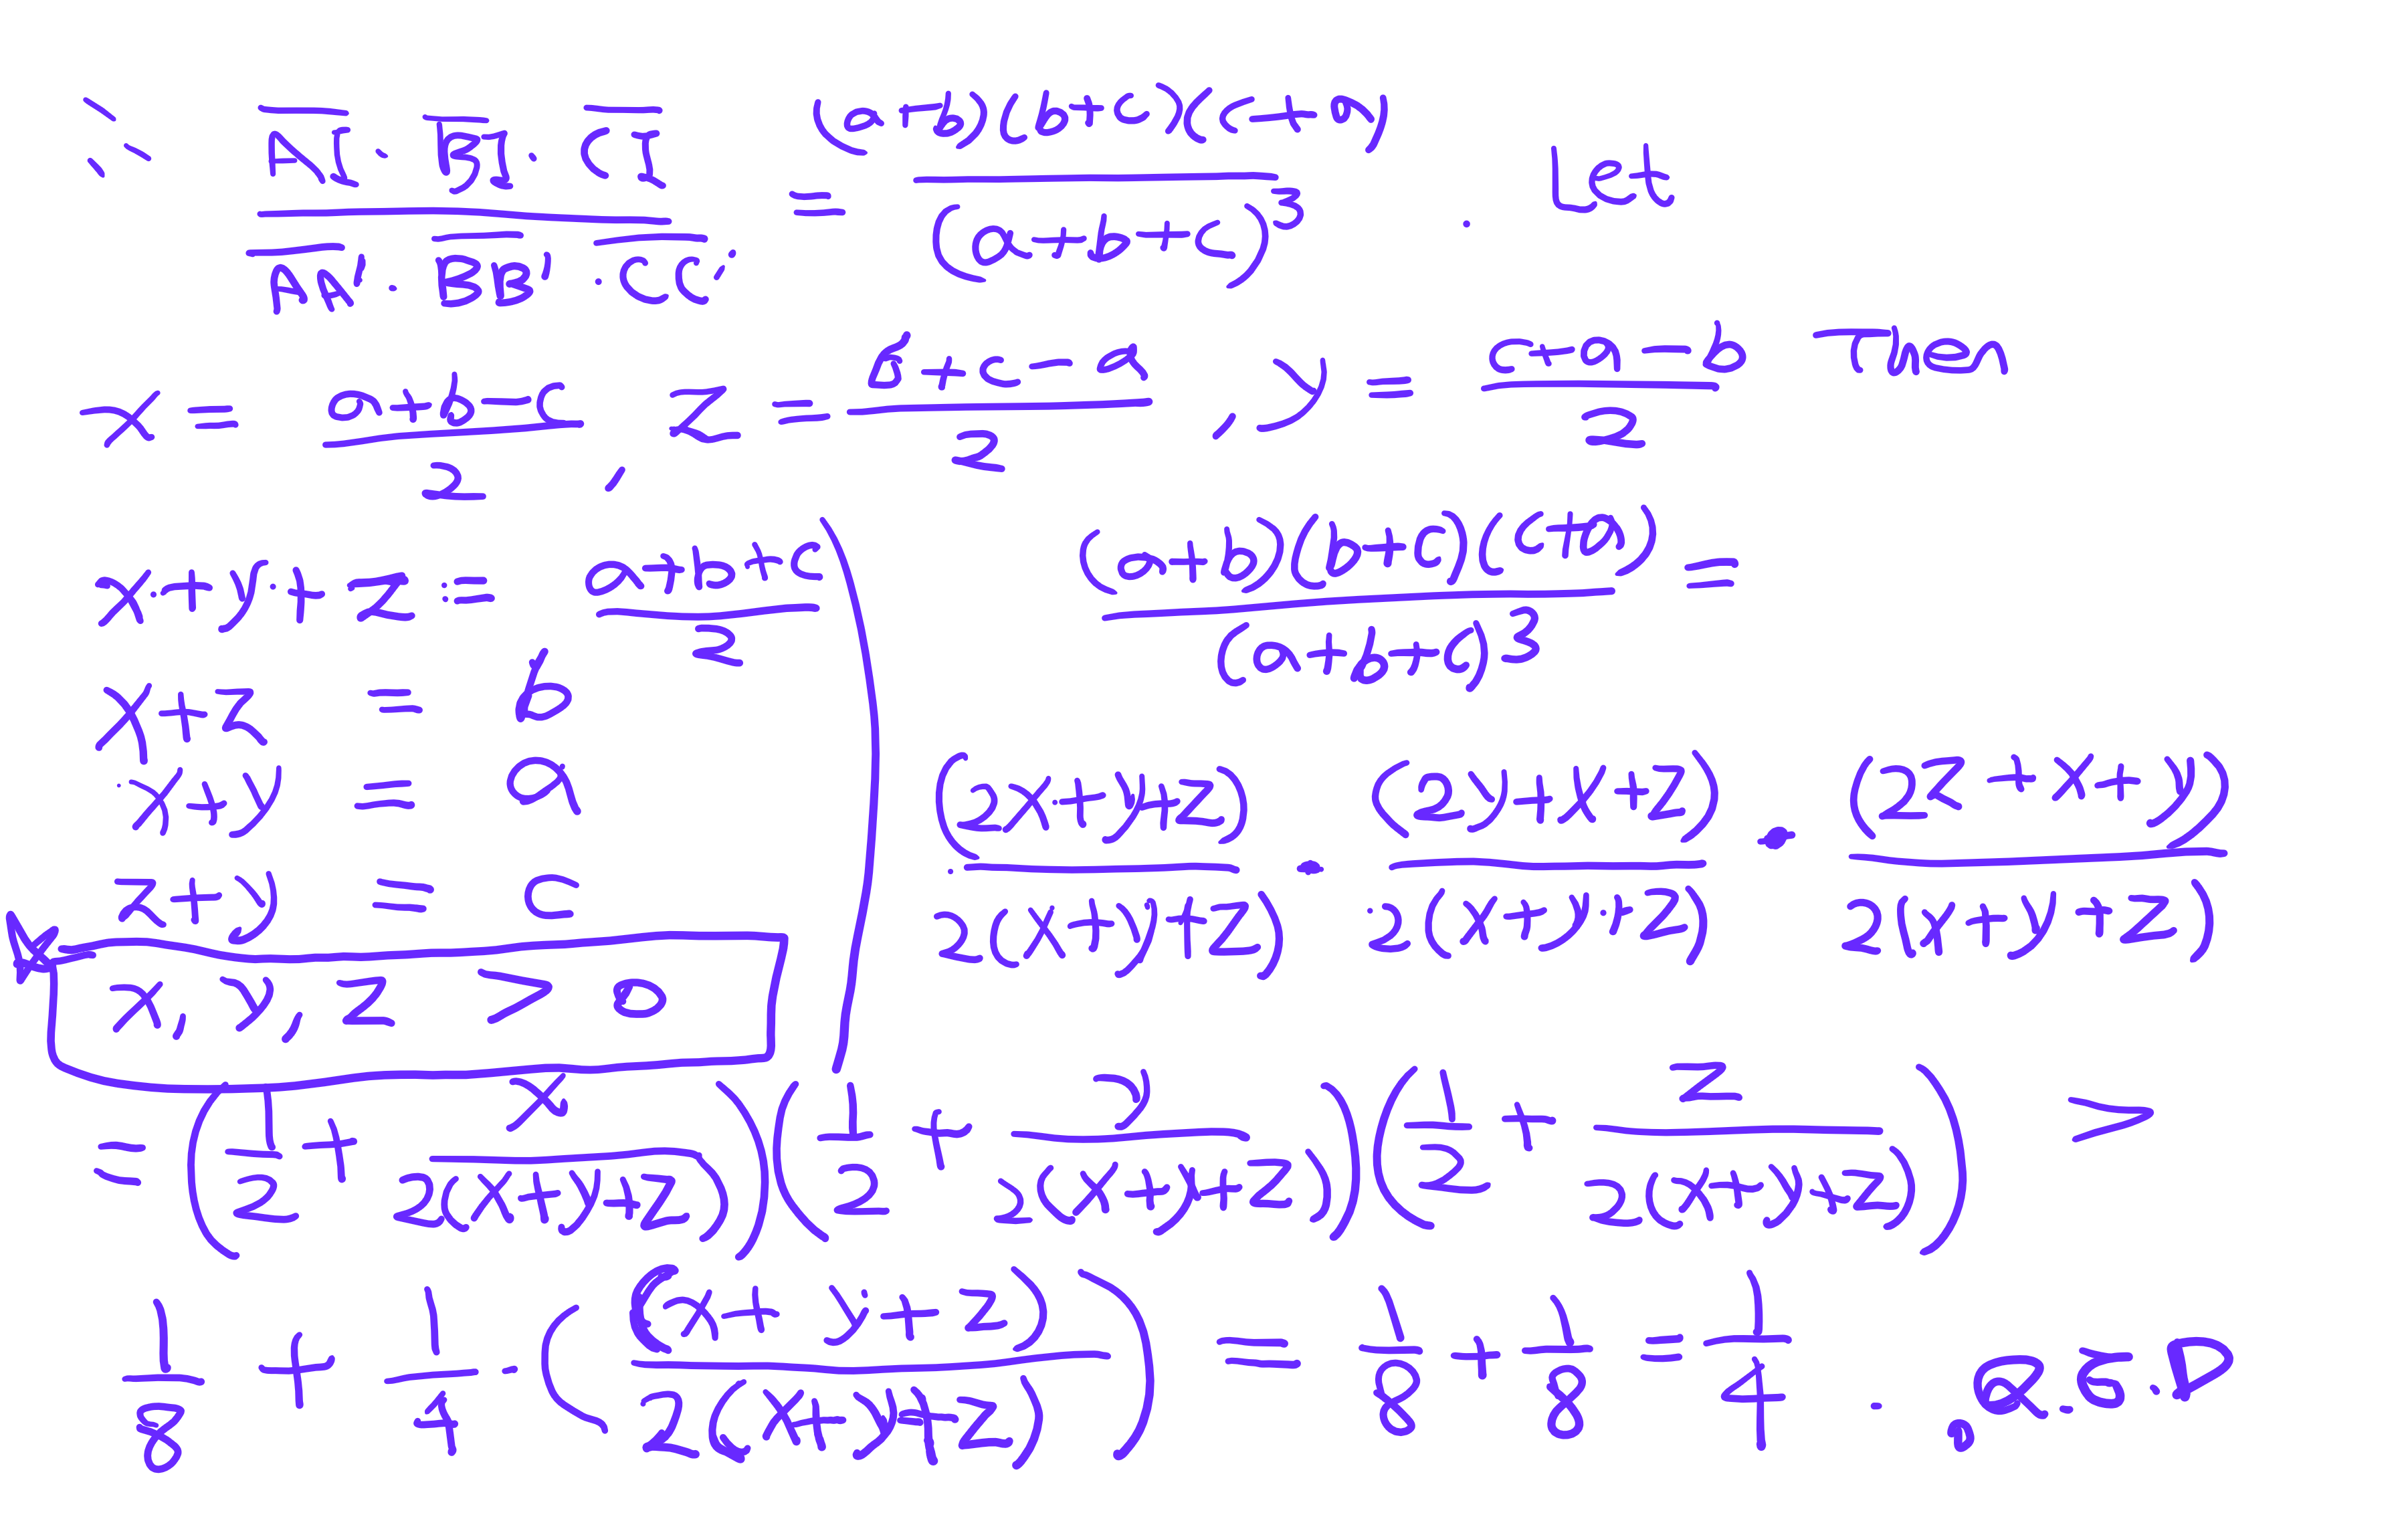 ∴ (AI · BI · CI) / (AA' · BB' · CC') = (a+b)(b+c)(c+a) / (a+b+c)³ . Let
x = (a+b-c)/2 , z = (b+c-a)/2 , y = (c+a-b)/2 Then
x+y+z = (a+b+c)/2
x+z = b
x+y = a
z+y = c
x, y, z > 0
(a+b)(b+c)(c+a) / (a+b+c)³ =
(2x+y+z) / 2(x+y+z) · (2y+x+z) / 2(x+y+z) · (2z+x+y) / 2(x+y+z)
= (1/2 + x / 2(x+y+z)) (1/2 + y / 2(x+y+z)) (1/2 + z / 2(x+y+z)) >
1/8 + 1/4 · ((x+y+z) / 2(x+y+z)) = 1/8 + 1/8 = 1/4 . Q.E.D